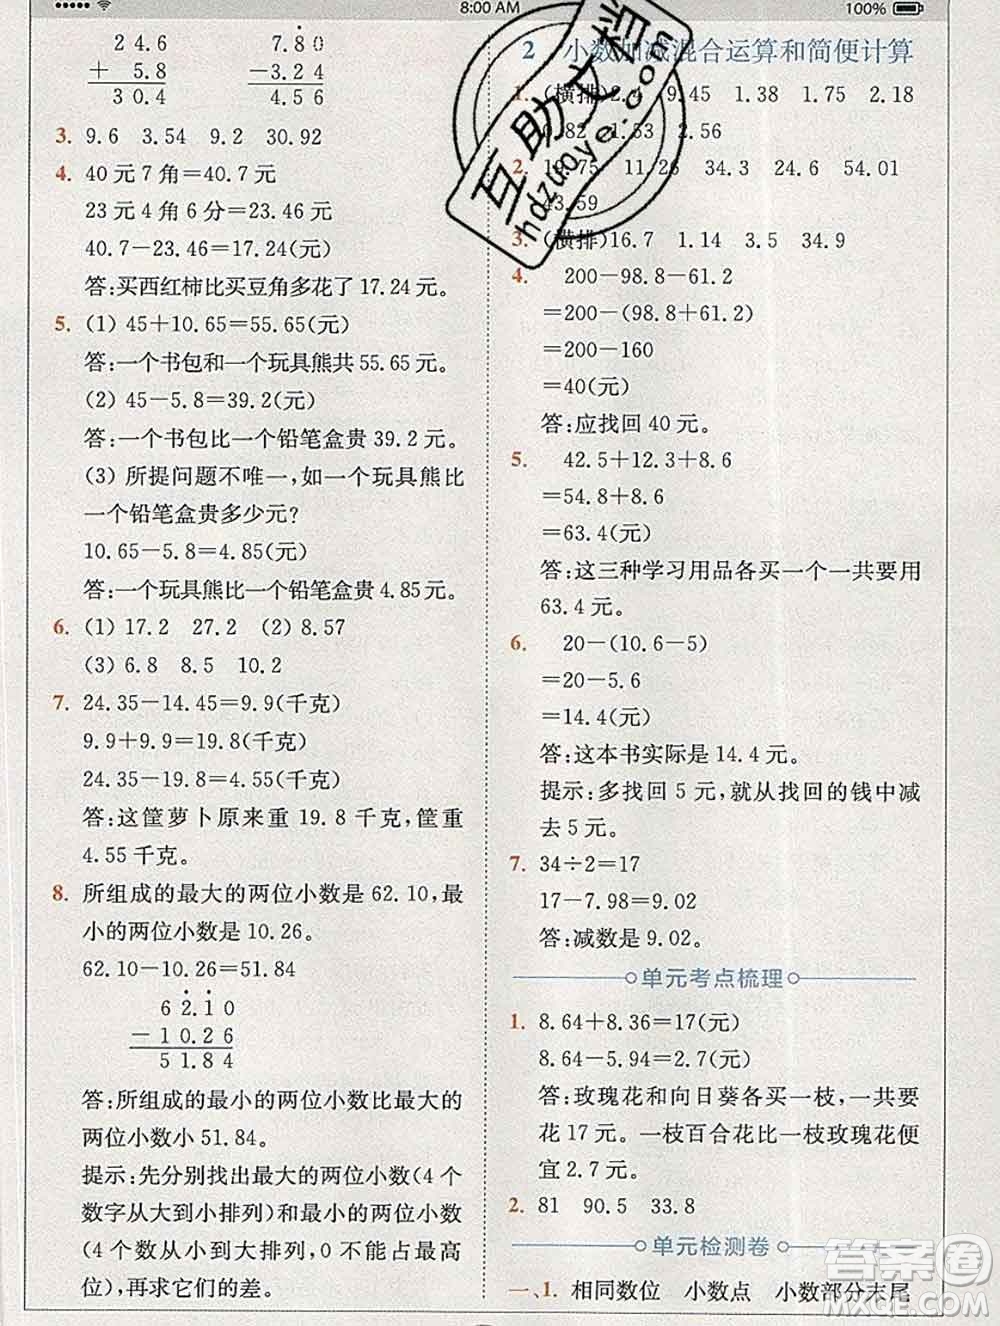 8:00 AM
100%
24.6
+ 5.8
30.4
7.80
-3.24
4.56
3. 9.6 3.54 9.2 30.92
4. 40元7角=40.7元
23元4角6分=23.46元
40.7-23.46=17.24(元)
答:买西红柿比买豆角多花了17.24元。
5. (1) 45+10.65=55.65(元)
答:一个书包和一个玩具熊共55.65元。
(2) 45-5.8=39.2(元)
答:一个书包比一个铅笔盒贵39.2元。
(3) 所提问题不唯一,如一个玩具熊比
一个铅笔盒贵多少元?
10.65-5.8=4.85(元)
答:一个玩具熊比一个铅笔盒贵4.85元。
6. (1) 17.2 27.2 (2) 8.57
(3) 6.8 8.5 10.2
7. 24.35-14.45=9.9(千克)
9.9+9.9=19.8(千克)
24.35-19.8=4.55(千克)
答:这筐萝卜原来重19.8千克,筐重
4.55千克。
8. 所组成的最大的两位小数是62.10,最
小的两位小数是10.26。
62.10-10.26=51.84
62.10
-10.26
51.84
答:所组成的最小的两位小数比最大的
两位小数小51.84。
提示:先分别找出最大的两位小数(4个
数字从大到小排列)和最小的两位小数
(4个数从小到大排列,0不能占最高
位),再求它们的差。
2 小数加减混合运算和简便计算
1. (横排)2.4 9.45 1.38 1.75 2.18
1.53 2.56
2. 11.26 34.3 34.7 54.01
43.59
3. (横排)16.7 1.14 3.5 34.9
4. 200-98.8-61.2
=200-(98.8+61.2)
=200-160
=40(元)
答:应找回40元。
5. 42.5+12.3+8.6
=54.8+8.6
=63.4(元)
答:这三种学习用品各买一个一共要用
63.4元。
6. 20-(10.6-5)
=20-5.6
=14.4(元)
答:这本书实际是14.4元。
提示:多找回5元,就从找回的钱中减
去5元。
7. 34÷2=17
17-7.98=9.02
答:减数是9.02。
单元考点梳理
1. 8.64+8.36=17(元)
8.64-5.94=2.7(元)
答:玫瑰花和向日葵各买一枝,一共要
花17元。一枝百合花比一枝玫瑰花便
宜2.7元。
2. 81 90.5 33.8
单元检测卷
一、1. 相同数位 小数点 小数部分末尾
互助文档
hdzuoye.com
答案圈
MXQE.COM